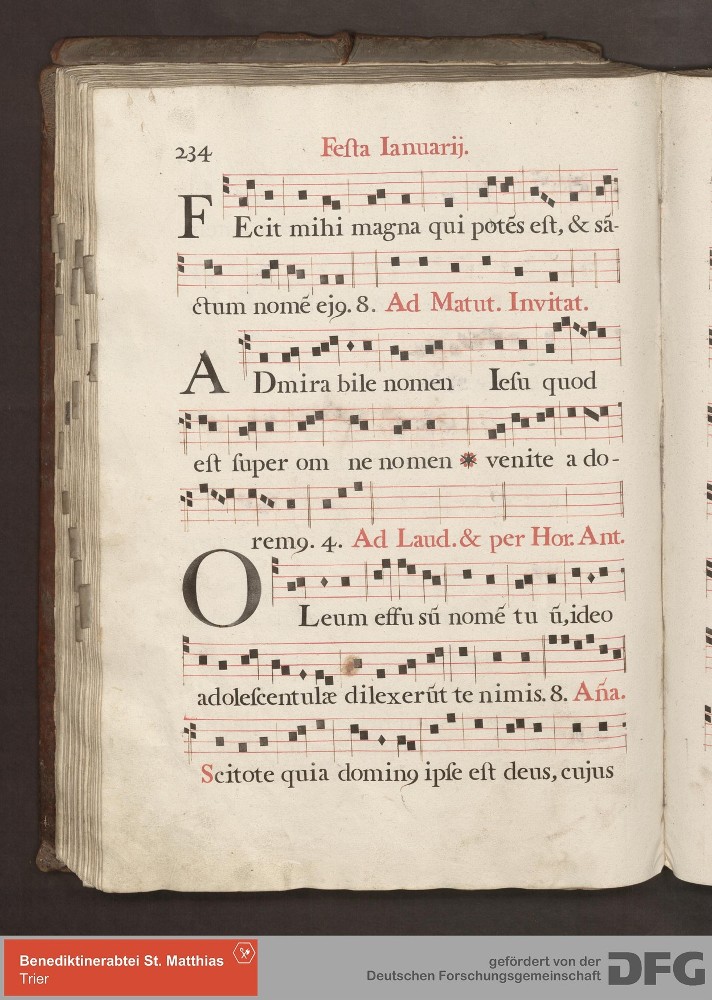 234 Feſta Ianuarij.
FEcit mihi magna qui potẽs eſt, & sã-
ctum nomẽ ej9. 8. Ad Matut. Invitat.
ADmira bile nomen Ieſu quod
eſt ſuper om ne nomen ✱ venite a do-
rem9. 4. Ad Laud. & per Hor. Ant.
OLeum effu sũ nomẽ tu ũ, ideo
adoleſcentulæ dilexerũt te nimis. 8. Aña.
Scitote quia domin9 ipſe eſt deus, cujus
Benediktinerabtei St. Matthias
Trier
gefördert von der
Deutschen Forschungsgemeinschaft DFG